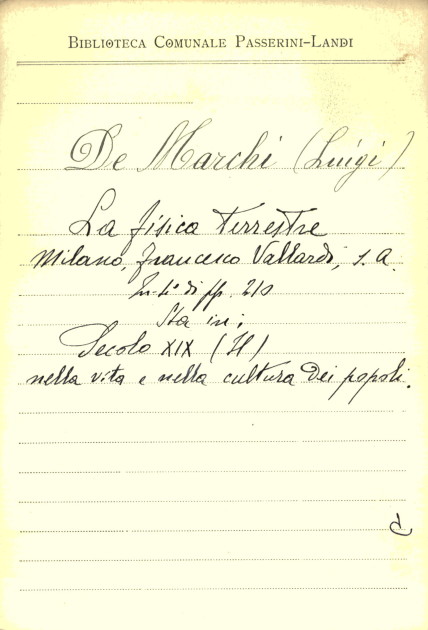 BIBLIOTECA COMUNALE PASSERINI-LANDI
De Marchi (Luigi)
La fisica terrestre
Milano, Francesco Vallardi, s. a.
In-4° di pp. 210
Sta in:
Secolo XIX (Il)
nella vita e nella cultura dei popoli.